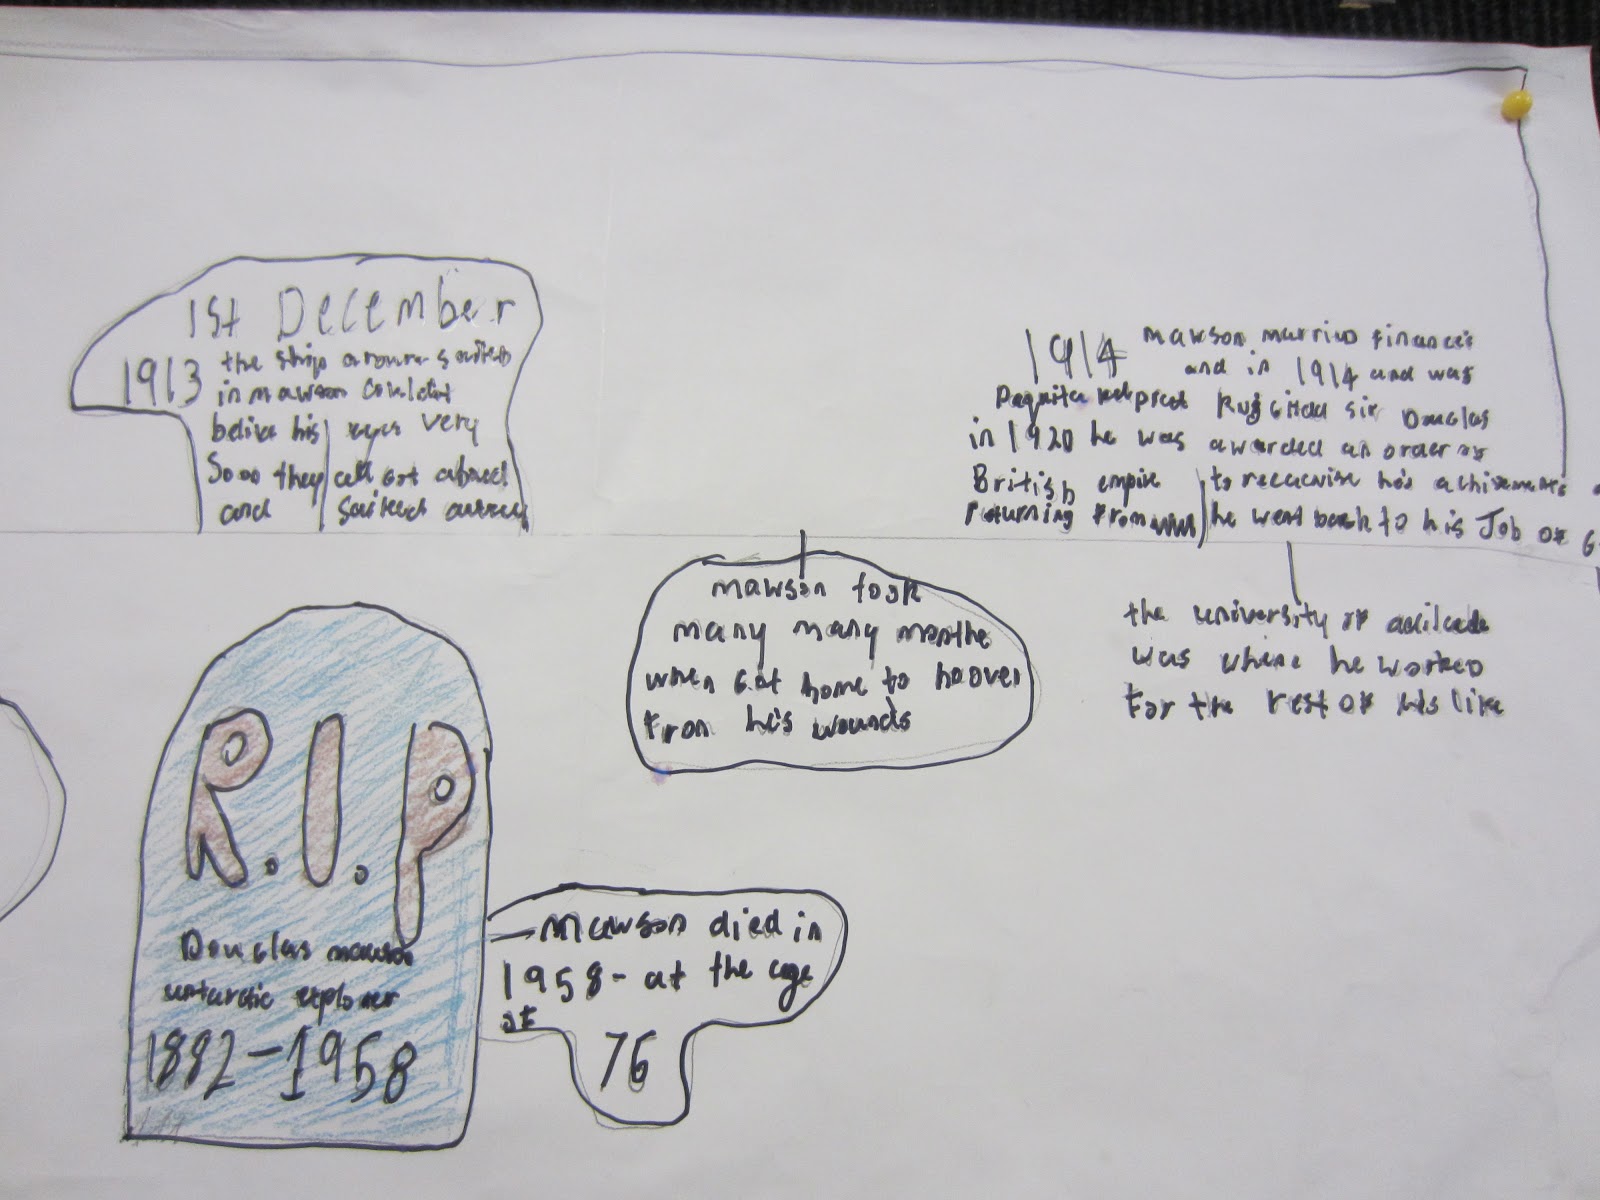 1st December
1913 the ship arourr sailed
in mawson couldnt
belive his eyes very
Sooo they all got abord
and sailed
1914 mawson married finance's
and in 1914 and was
Paquita Sir Douglas
in 1920 he was awarded an order of
British empire to his achivements
returning from he went back to his Job of G
mawson took
many many months
when got home to
from he's wounds
the university of
was where he worked
for the rest of his life
R.I.P
Douglas mawson
antarctic explorer
1882-1958
mawson died in
1958- at the age
of
76